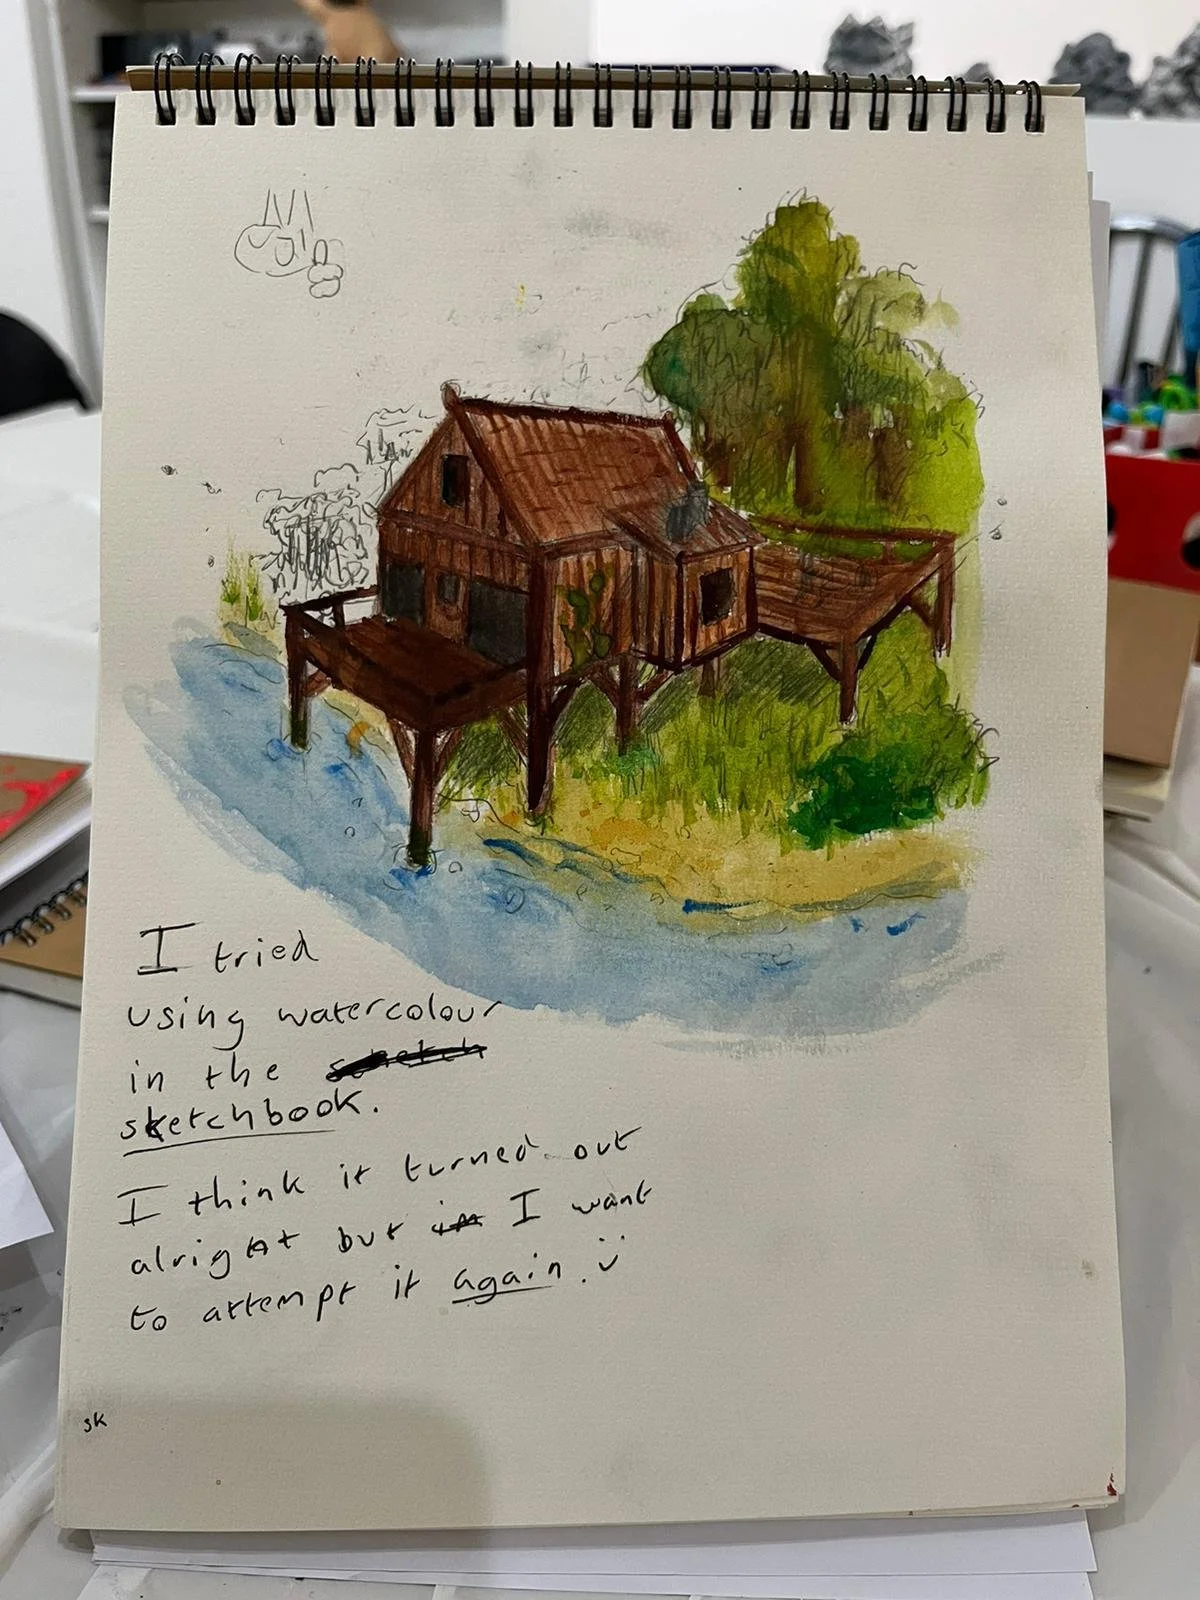 I tried
using watercolour
in the sketch
sketchbook.
I think it turned out
alright but im I want
to attempt it again. :)
sk